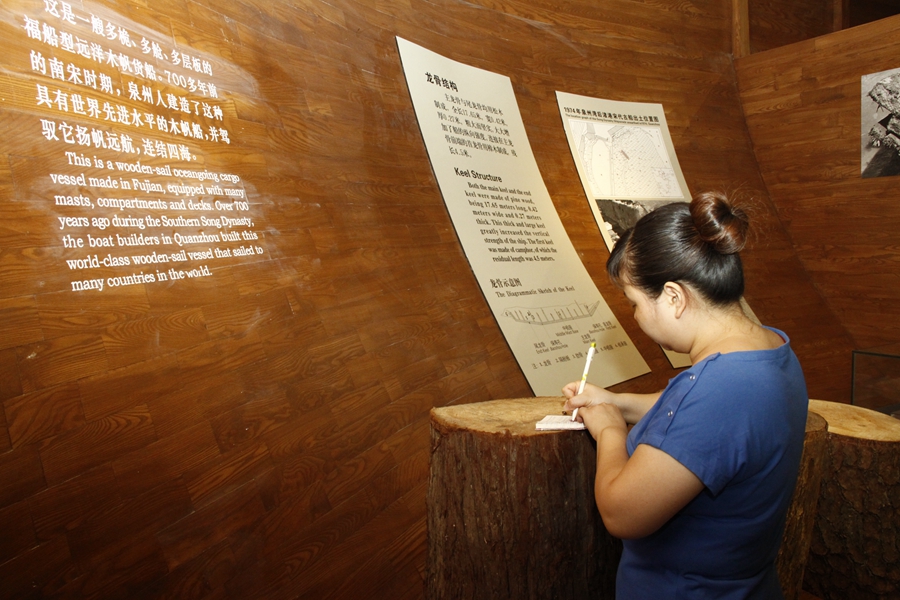 这是一艘多桅、多舱、多层板的
福船型远洋木帆货船。700多年前
的南宋时期，泉州人建造了这种
具有世界先进水平的木帆船，并驾
驭它扬帆远航，连结四海。
This is a wooden-sail oceangoing cargo
vessel made in Fujian, equipped with many
masts, compartments and decks. Over 700
years ago during the Southern Song Dynasty,
the boat builders in Quanzhou built this
world-class wooden-sail vessel that sailed to
many countries in the world.
龙骨结构
Keel Structure
Both the main keel and the end
keel were made of pine wood,
being 17.65 meters long, 0.42
meters wide and 0.27 meters
thick. This thick and large keel
greatly increased the vertical
strength of the ship. The first keel
was made of camphor, of which the
residual length was 4.5 meters.
龙骨示意图
The Diagrammatic Sketch of the Keel